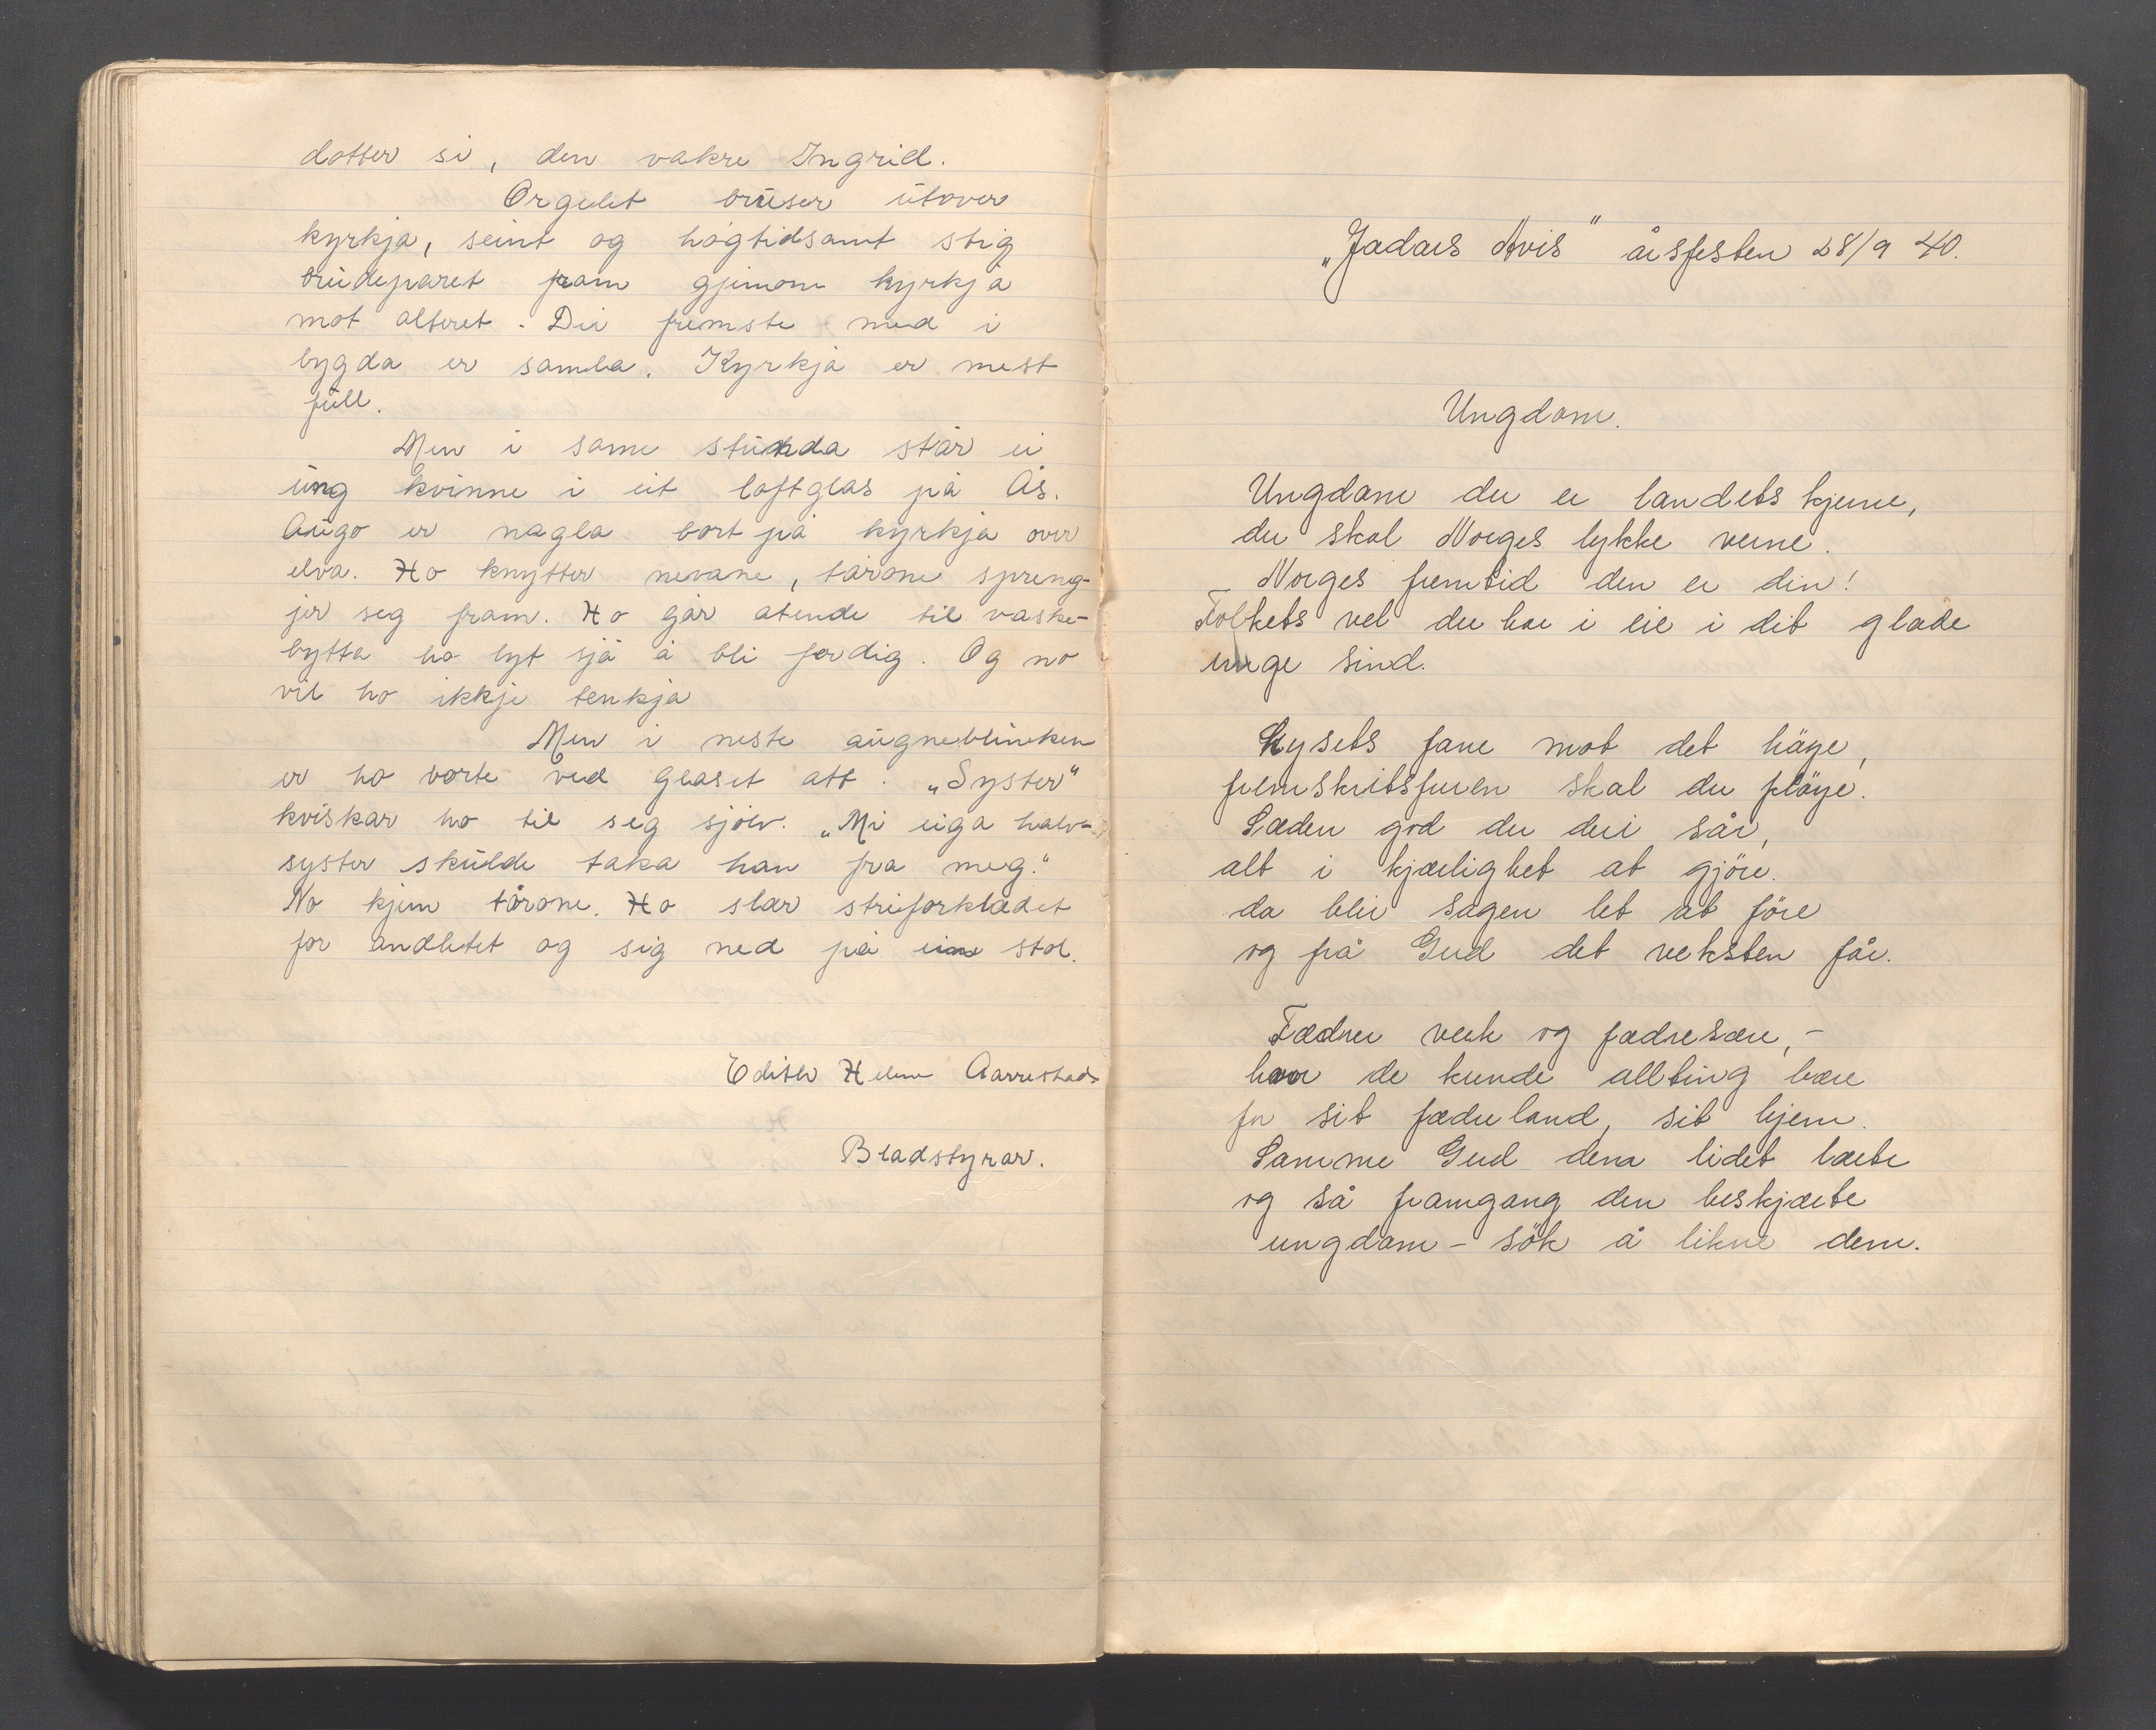 dotter si, den vakre Ingrid.
Orgelet bruser utover
kyrkja, seint og høgtidsamt stig
brudeparet fram gjenom kyrkja
mot alteret. Dei fremste med i
bygda er samla. Kyrkja er mest
full.
Men i same stunda står ei
ung kvinne i eit loftglas på Ås.
Augo er nagla bort på kyrkja over
elva. Ho knytter nevane, tårone spreng-
jer seg fram. Ho går atende til vaske-
bytta ho lyt sjå å bli ferdig. Og no
vil ho ikkje tenkja
Men i neste augneblinken
er ho borte ved glaset att. „Syster"
kviskar ho til seg sjølv. „Mi eiga halv-
syster skulde taka han fra meg."
No kjem tårone. Ho slær striforklædet
for andletet og sig ned på ein stol.
Edith Helene Aarrestad
Bladstyrar.
„Jadars Avis" årsfesten 28/9 40.
Ungdom.
Ungdom du er landets kjerne,
du skal Norges lykke verne.
Norges fremtid den er din!
Folkets vel du har i eie i dit glade
unge sind.
Lysets fane mot det høye,
fremskritsfuren skal du pløye.
Sæden god du deri sår,
alt i kjærlighet at gjøre.
da blir sagen let at føre
og frå Gud det veksten får.
Fædrer verk og fædresære,-
hvor de kunde allting bære
for sit fædreland, sit hjem.
Samme Gud dem lidet lærte
og så framgang den beskjærte
ungdom - søk å likne dem.